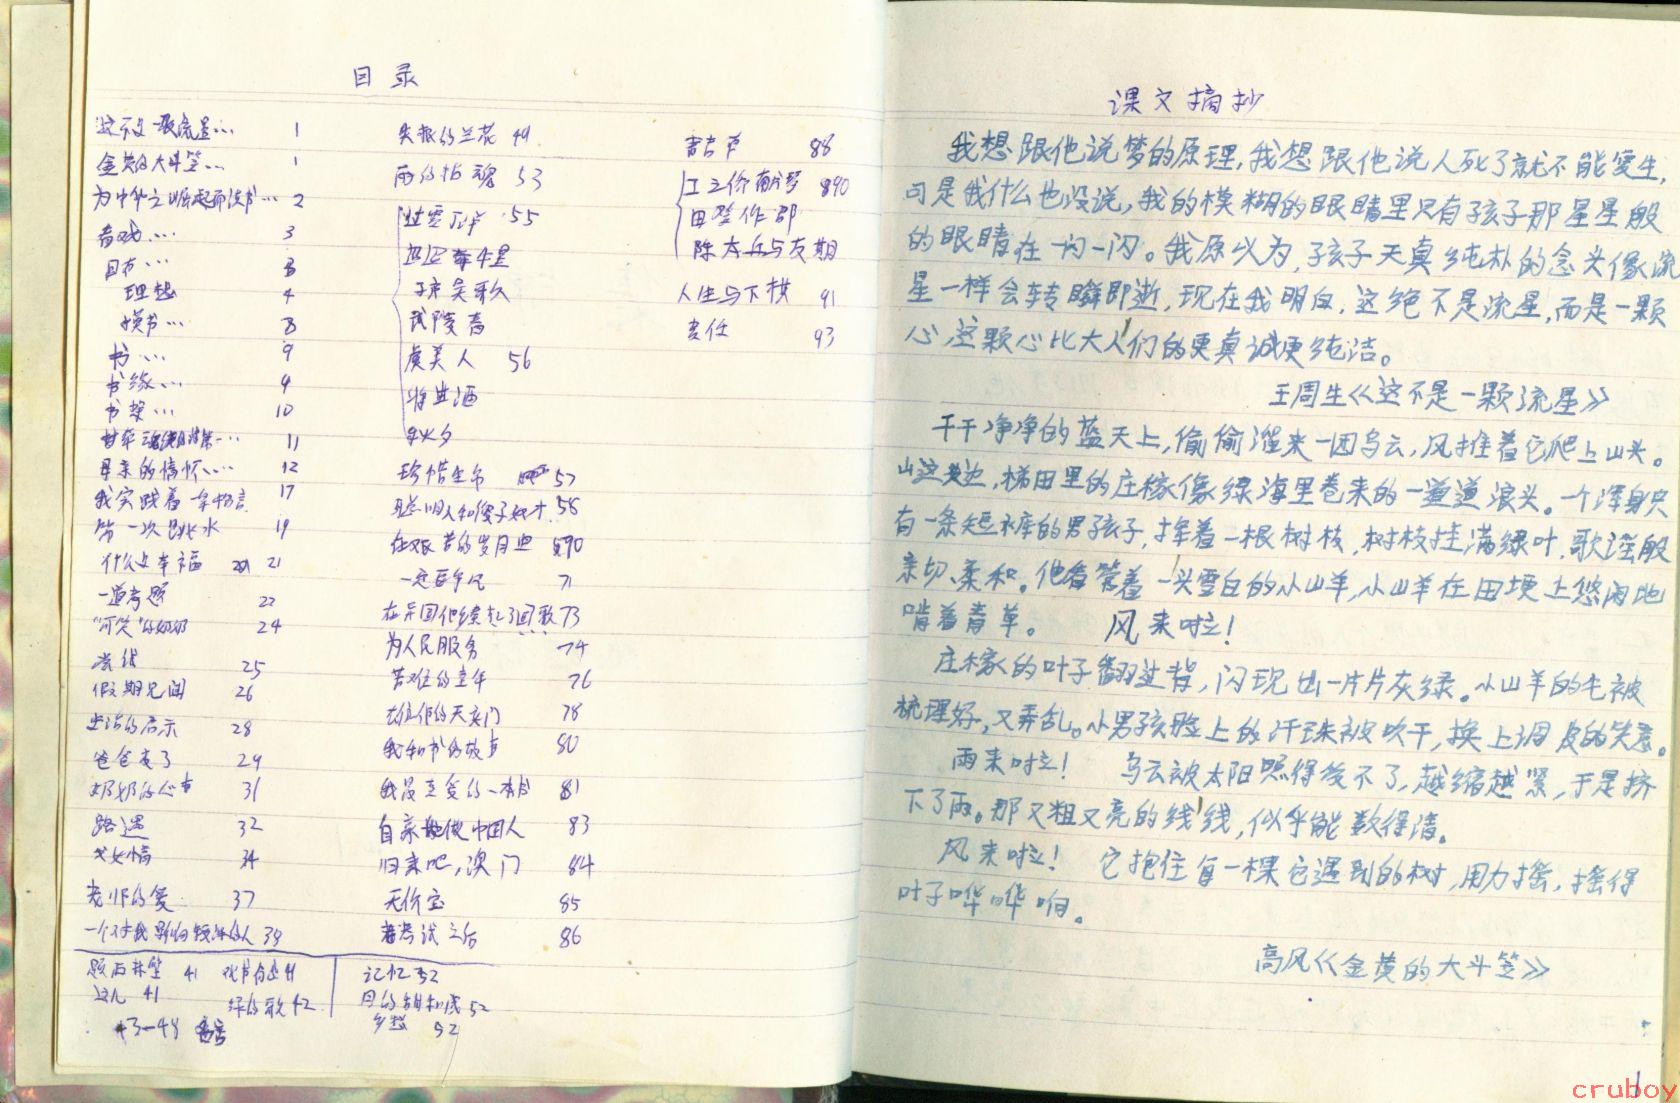 目录
这不是一颗流星… 1
金黄的大斗笠… 1
为中华之崛起而读书… 2
看戏… 3
日出… 3
理想 4
换书… 8
书… 9
书缘… 9
书架… 10
11
母亲的情怀… 12
我实践着一条格言 17
第一次跳水 19
什么是幸福 21
一道考题 22
"可笑"的奶奶 24
25
假期见闻 26
生活的启示 28
爸爸走了 29
奶奶的心事 31
路遇 32
父女情 34
老师的爱 37
一个对我影响较深的人 39
题西林壁 41
观书有感 41
41
绿的歌 42
43-48
失根的兰花 49
雨的精魂 53
过零丁洋 55
迢迢牵牛星
子夜吴歌
武陵春
虞美人 56
将进酒
秋夕
珍惜生命 57
聪明人和傻子奴才 58
在艰苦的岁月里 590
71
在异国他乡唱起了国歌 73
为人民服务 74
苦难的童年 76
78
我和书的故事 80
我最喜爱的一本书 81
自豪 中国人 83
归来吧,澳门 84
无价宝 85
考试之后 86
记忆 52
月的 52
乡愁 52
88
江之侨献琴 890
田登作郡
陈太丘与友期
人生与下棋 91
责任 93
课文摘抄
我想跟他说梦的原理,我想跟他说人死了就不能复生,
可是我什么也没说,我的模糊的眼睛里只有孩子那星星般
的眼睛在一闪一闪。我原以为,孩子天真纯朴的念头像流
星一样会转瞬即逝,现在我明白,这绝不是流星,而是一颗
心,这颗心比大人们的更真诚更纯洁。
王周生《这不是一颗流星》
干干净净的蓝天上,偷偷溜来一团乌云,风推着它爬上山头。
山这边,梯田里的庄稼像绿海里卷来的一道道浪头。一个浑身只
有一条短裤的男孩子,挥着一根树枝,树枝挂满绿叶,歌谣般
亲切、柔和。他看管着一头雪白的小山羊,小山羊在田埂上悠闲地
啃着青草。 风来啦!
庄稼的叶子翻过背,闪现出一片片灰绿。小山羊的毛被
梳理好,又弄乱。小男孩脸上的汗珠被吹干,换上调皮的笑意。
雨来啦! 乌云被太阳照得发不了,越缩越紧,于是挤
下了雨。那又粗又亮的线线,似乎能数得清。
风来啦! 它抱住每一棵它遇到的树,用力摇,摇得
叶子哗哗响。
高风《金黄的大斗笠》
1
cruboy